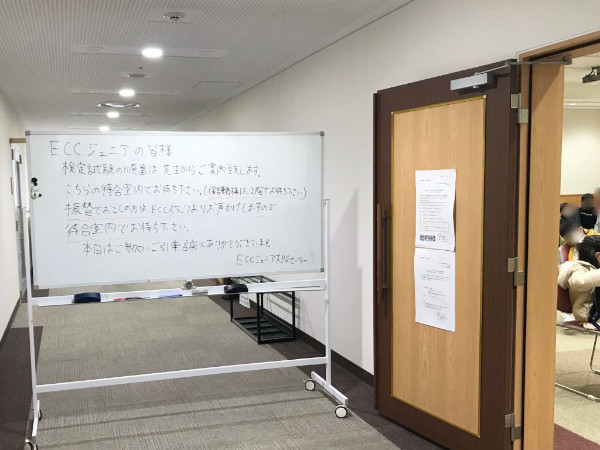 ECCジュニアの皆様
検定試験の順番は、先生からご案内致します。
こちらの待合室内でお待ち下さい。(保護者様は、2階でお待ち下さい)
振替でお越しの方は、ECCスタッフよりお声かけしますので
待合室内でお待ち下さい。
本日はご参加・ご引率誠にありがとうございます。
ECCジュニア センター